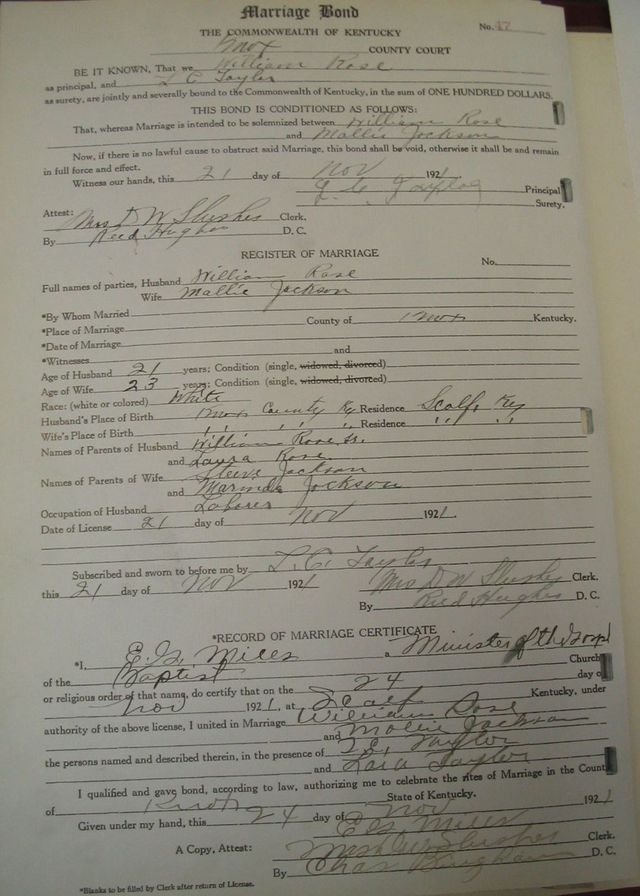 Marriage Bond
THE COMMONWEALTH OF KENTUCKY
No. 47
Knox COUNTY COURT
BE IT KNOWN, That we William Rose
as principal, and L C Taylor
as surety, are jointly and severally bound to the Commonwealth of Kentucky, in the sum of ONE HUNDRED DOLLARS.
THIS BOND IS CONDITIONED AS FOLLOWS:
That, whereas Marriage is intended to be solemnized between William Rose
and Mallie Jackson
Now, if there is no lawful cause to obstruct said Marriage, this bond shall be void, otherwise it shall be and remain
in full force and effect.
Witness our hands, this 21 day of Nov 1921
L. C. Taylor Principal
Surety.
Attest:
Mrs D W Slusher Clerk.
By Reed Hughes D. C.
REGISTER OF MARRIAGE
No.
Full names of parties, Husband William Rose
Wife Mallie Jackson
*By Whom Married
*Place of Marriage County of Knox Kentucky.
*Date of Marriage
*Witnesses and
Age of Husband 21 years; Condition (single, widowed, divorced)
Age of Wife 23 years; Condition (single, widowed, divorced)
Race: (white or colored) White
Husband's Place of Birth Knox County Ky Residence Scalf, Ky
Wife's Place of Birth " " " Residence " "
Names of Parents of Husband William Rose Sr.
and Laura Rose
Names of Parents of Wife Steve Jackson
and Jackson
Occupation of Husband Laborer
Date of License 21 day of Nov 1921.
Subscribed and sworn to before me by L. C. Taylor
this 21 day of Nov 1921
Mrs D W Slusher Clerk.
By Reed Hughes D. C.
*RECORD OF MARRIAGE CERTIFICATE
*I, E. G. Miles a Minister of the Gospl
of the Baptist Church
or religious order of that name, do certify that on the 24 day of
Nov 1921, at Scalf Kentucky, under
authority of the above license, I united in Marriage William Rose
and Mallie Jackson
the persons named and described therein, in the presence of Taylor
and Taylor
I qualified and gave bond, according to law, authorizing me to celebrate the rites of Marriage in the Count
of Knox State of Kentucky.
Given under my hand, this 24 day of Nov 1921
E. G. Miles
A Copy, Attest: Mrs D W Slusher Clerk.
By Chas Bingham D. C.
*Blanks to be filled by Clerk after return of License.